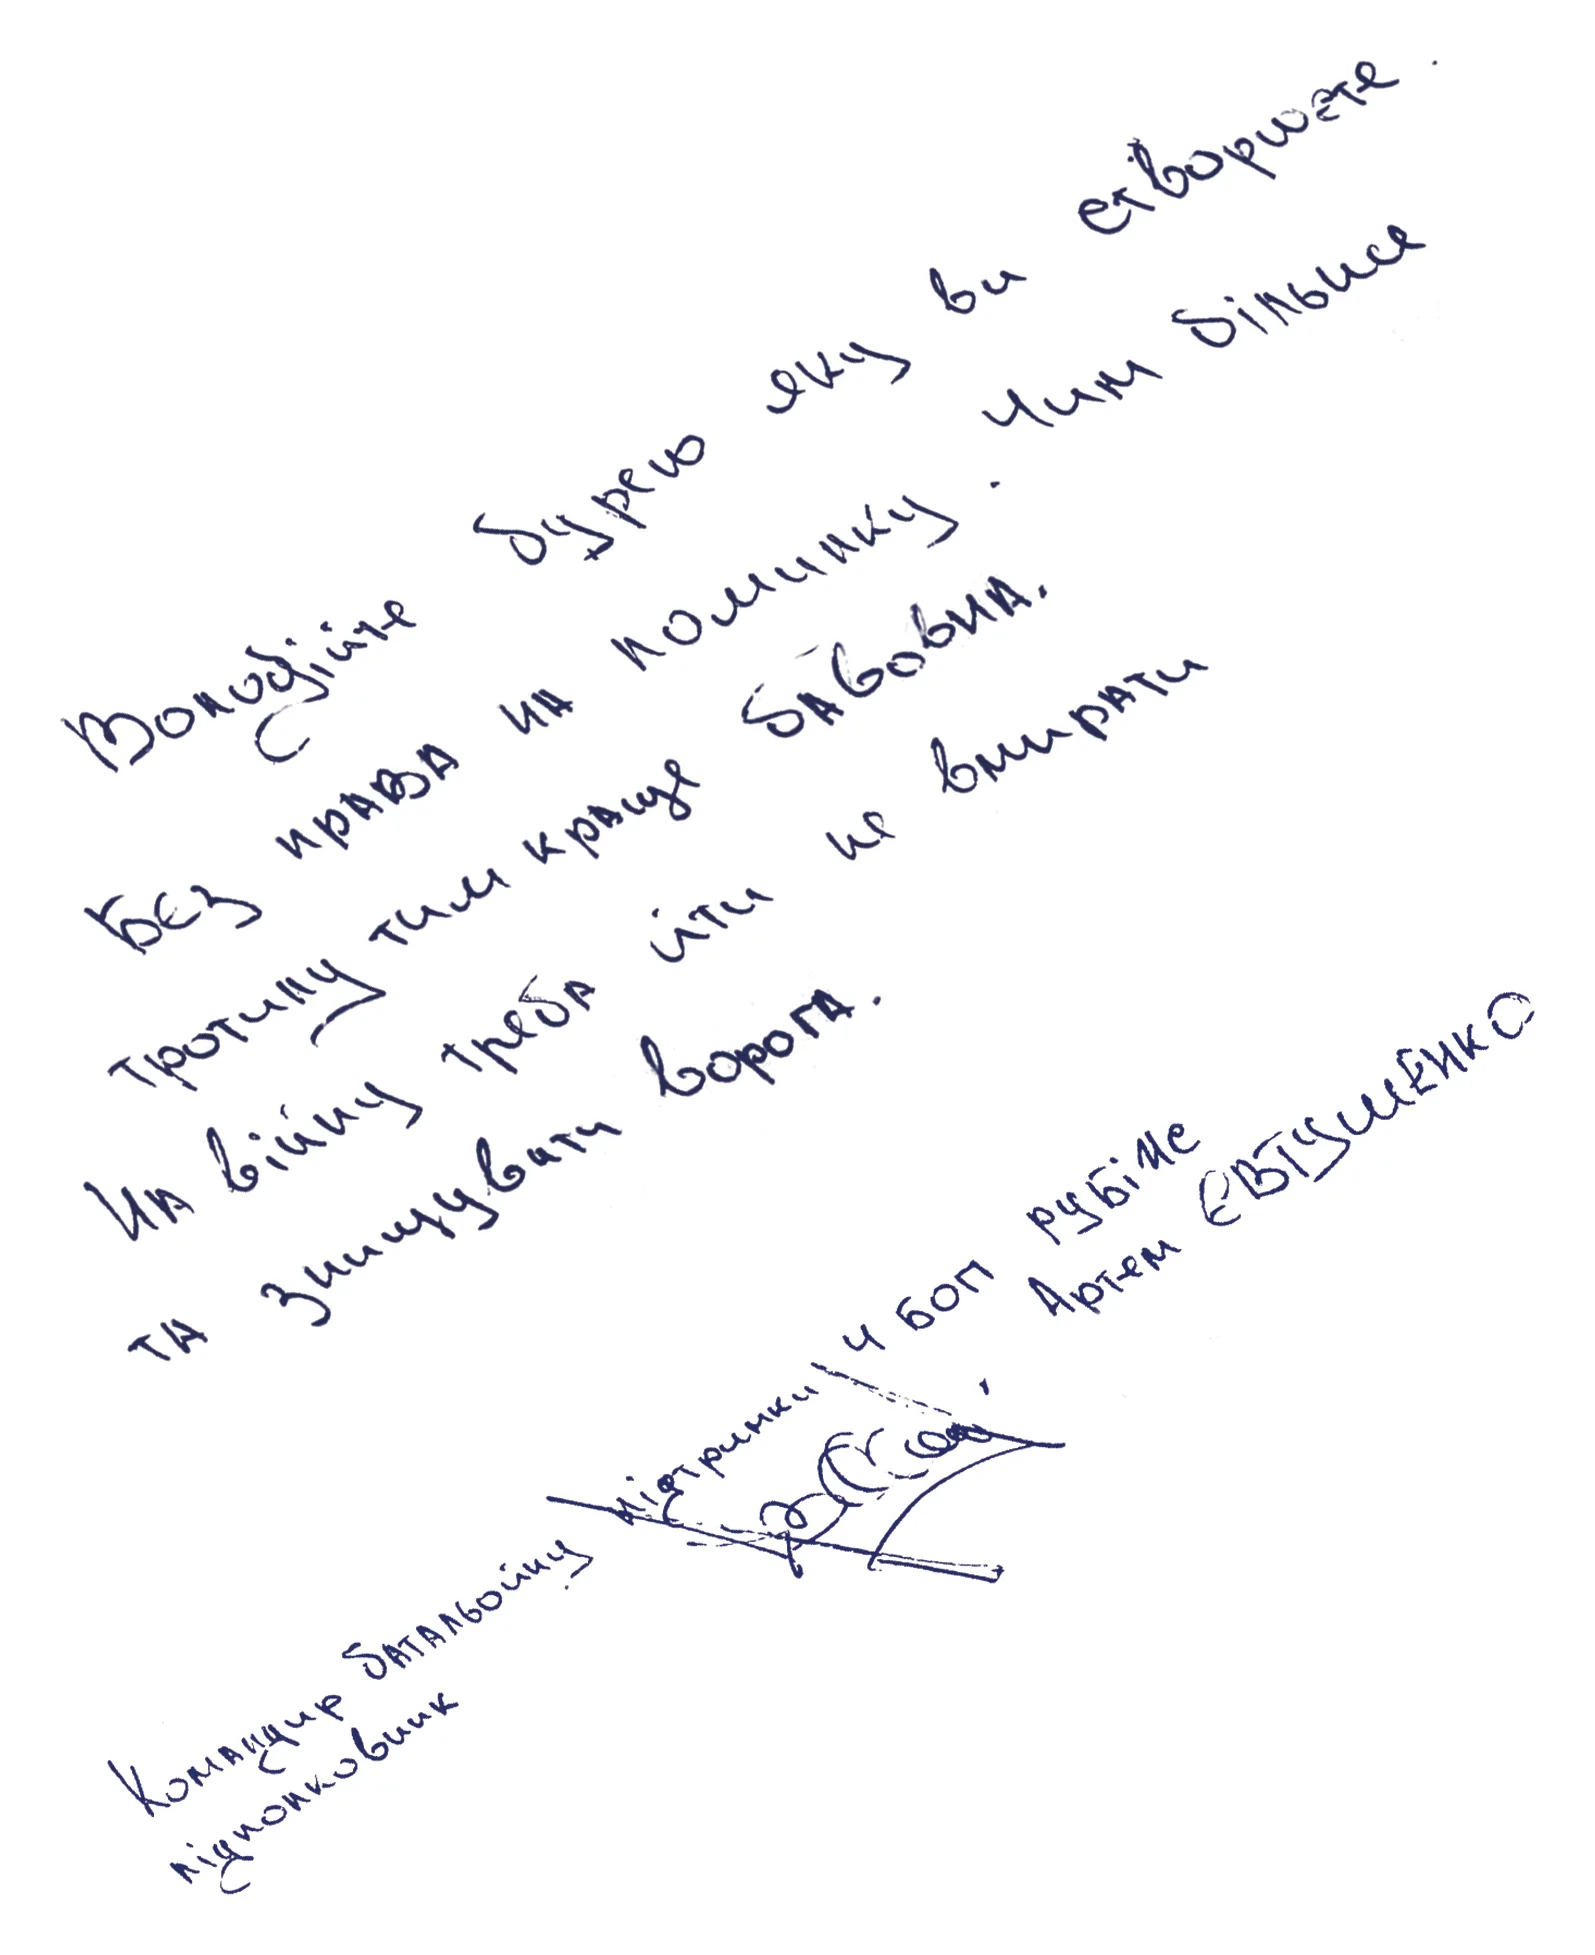 Володійте бурею яку ви створюєте.
Без права на помилку. Чим більше
тротилу тим краще бавовна.
На війну треба йти не вмирати
та знищувати ворога.
Командир батальойну підтримки 4 БОП рубіже
підполковник Артем ЄВТУШЕНКО